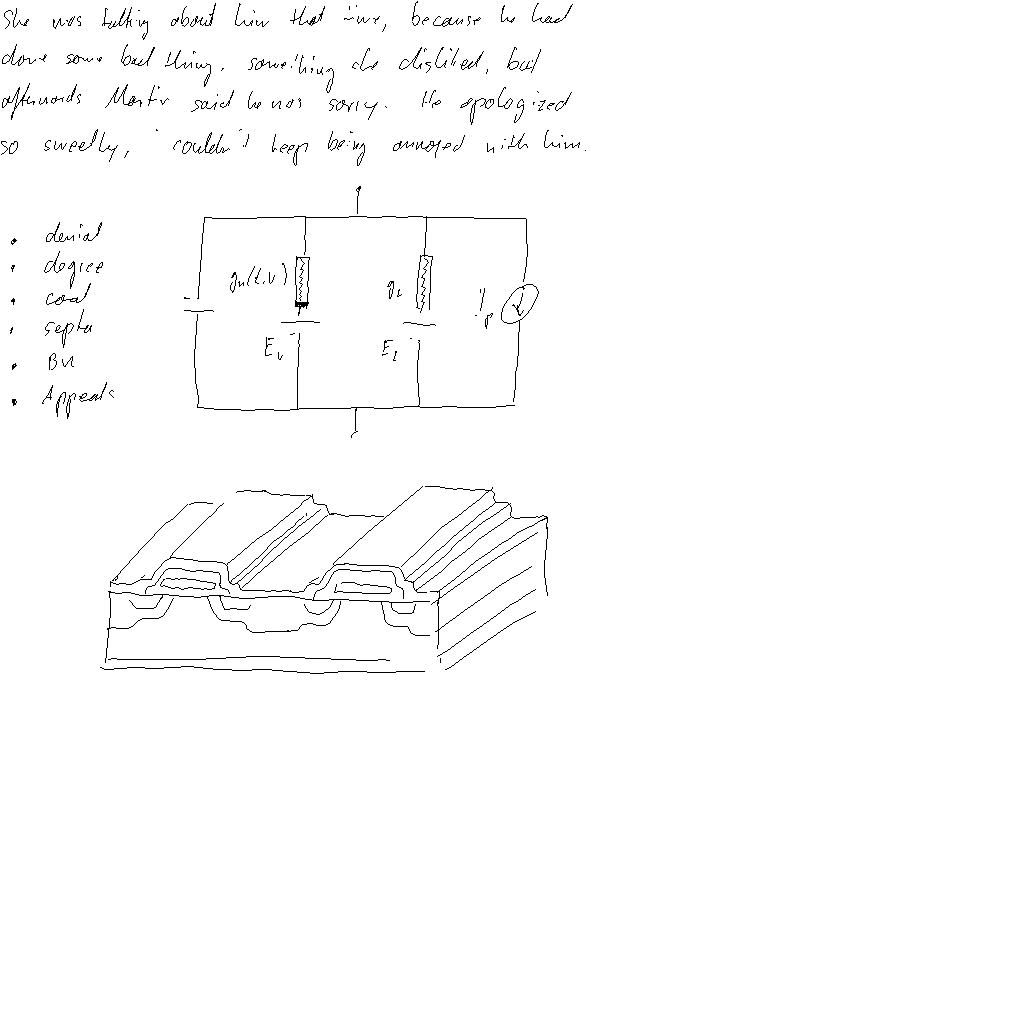 She was talking about him that time, because he had
done some bad thing, something she disliked, but
afterwards Martin said he was sorry. He apologized
so sweetly, couldn't keep being annoyed with him.
denial
degree
coal
septa
BM
Appeals
gn(t,V)
En
gl
El
Ip